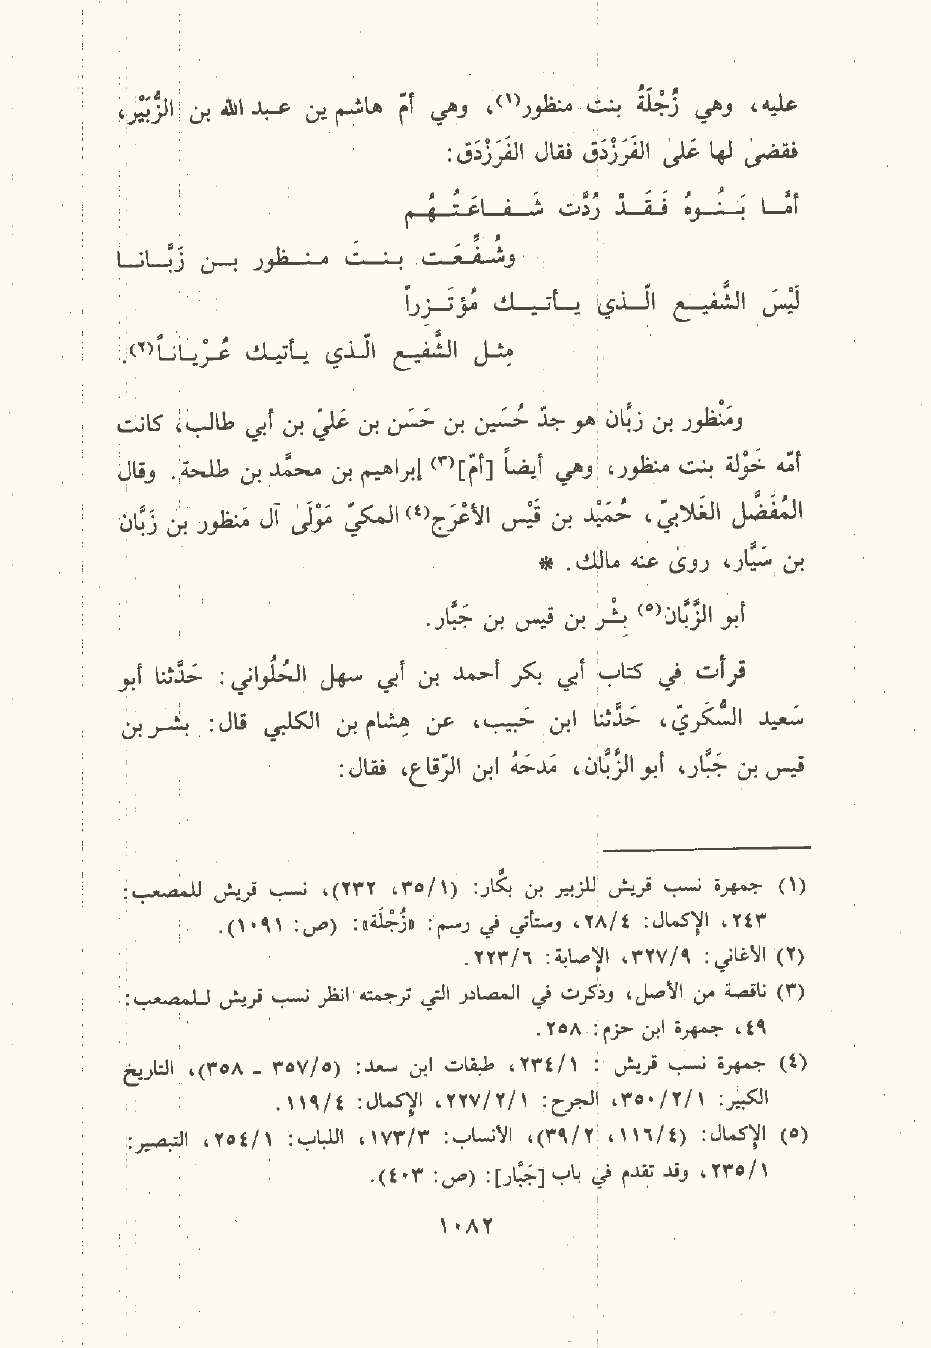 عليه، وهي زُجْلَةُ بنت منظور(١)، وهي أمّ هاشم بن عبد الله بن الزُّبَيْر،
فقضىٰ لها عَلى الفَرَزْدَق فقال الفَرَزْدَق:
أمَّا بَنُوهُ فَقَدْ رُدَّت شَفاعَتُهُم
وشُفِّعَت بنتُ منظور بن زَبَّانا
لَيْسَ الشَّفيع الَّذي يأتيك مُؤتَزراً
مِثل الشَّفيع الَّذي يأتيك عُرْيَاناً(٢).
ومَنْظور بن زبَّان هو جدّ حُسَين بن حَسَن بن عَليّ بن أبي طالب، كانت
أمّه خَوْلة بنت منظور، وهي أيضاً [أمّ](٣) إبراهيم بن محمَّد بن طلحة. وقاول
المُفَضَّل الغَلابيّ، حُمَيْد بن قَيْس الأَعْرَج(٤) المكيّ مَوْلَى آل مَنظور بن زَبَّان
بن سَيَّار، روى عنه مالك. *
أبو الزَّبَّان(٥) بِشْر بن قيس بن جَبَّار.
قرأت في كتاب أبي بكر أحمد بن أبي سهل الحُلُواني: حَدَّثنا أبو
سَعيد السُّكَريّ، حَدَّثنا ابن حَبيب، عن هِشام بن الكلبي قال: بشر بن
قيس بن جَبَّار، أبو الزَّبَّان، مَدَحَهُ ابن الرِّقاع، فقال:
(١) جمهرة نسب قريش للزبير بن بكَّار: (٣٥/١، ٢٣٢)، نسب قريش للمصعب:
٢٤٣، الإكمال: ٢٨/٤، وستأتي في رسم: «زُجْلَة»: (ص: ١٠٩١).
(٢) الأغاني: ٣٢٧/٩، الإصابة: ٢٢٣/٦.
(٣) ناقصة من الأصل، وذكرت في المصادر التي ترجمته انظر نسب قريش للمصعب:
٤٩، جمهرة ابن حزم: ٢٥٨.
(٤) جمهرة نسب قريش : ٢٣٤/١، طبقات ابن سعد: (٣٥٧/٥ - ٣٥٨)، التاريخ
الكبير: ٣٥٠/٢/١، الجرح: ٢٢٧/٢/١، الإكمال: ١١٩/٤.
(٥) الإكمال: (١١٦/٤، ٣٩/٢)، الأنساب: ١٧٣/٣، اللباب: ٢٥٤/١، التبصير:
٢٣٥/١، وقد تقدم في باب [جَبَّار]: (ص: ٤٠٣).
١٠٨٢